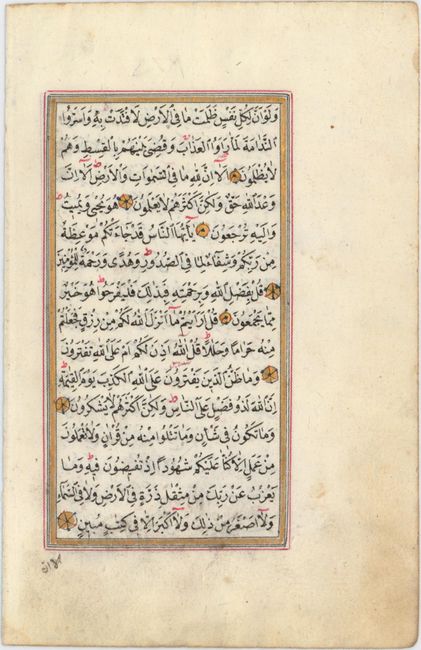 وَلَوْ اَنَّ لِكُلِّ نَفْسٍ ظَلَمَتْ مَا فِي الْاَرْضِ لَافْتَدَتْ بِهِ وَاَسَرُّوا
النَّدَامَةَ لَمَّا رَاَوُا الْعَذَابَ وَقُضِيَ بَيْنَهُمْ بِالْقِسْطِ وَهُمْ
لَا يُظْلَمُونَ اَلَا اِنَّ لِلّٰهِ مَا فِي السَّمٰوَاتِ وَالْاَرْضِ اَلَا اِنَّ
وَعْدَ اللّٰهِ حَقٌّ وَلٰكِنَّ اَكْثَرَهُمْ لَا يَعْلَمُونَ هُوَ يُحْيِي وَيُمِيتُ
وَاِلَيْهِ تُرْجَعُونَ يَا اَيُّهَا النَّاسُ قَدْ جَاءَتْكُمْ مَوْعِظَةٌ
مِنْ رَبِّكُمْ وَشِفَاءٌ لِمَا فِي الصُّدُورِ وَهُدًى وَرَحْمَةٌ لِلْمُؤْمِنِينَ
قُلْ بِفَضْلِ اللّٰهِ وَبِرَحْمَتِهِ فَبِذٰلِكَ فَلْيَفْرَحُوا هُوَ خَيْرٌ
مِمَّا يَجْمَعُونَ قُلْ اَرَاَيْتُمْ مَا اَنْزَلَ اللّٰهُ لَكُمْ مِنْ رِزْقٍ فَجَعَلْتُمْ
مِنْهُ حَرَامًا وَحَلَالًا قُلْ آللّٰهُ اَذِنَ لَكُمْ اَمْ عَلَى اللّٰهِ تَفْتَرُونَ
وَمَا ظَنُّ الَّذِينَ يَفْتَرُونَ عَلَى اللّٰهِ الْكَذِبَ يَوْمَ الْقِيٰمَةِ
اِنَّ اللّٰهَ لَذُو فَضْلٍ عَلَى النَّاسِ وَلٰكِنَّ اَكْثَرَهُمْ لَا يَشْكُرُونَ
وَمَا تَكُونُ فِي شَاْنٍ وَمَا تَتْلُوا مِنْهُ مِنْ قُرْاٰنٍ وَلَا تَعْمَلُونَ
مِنْ عَمَلٍ اِلَّا كُنَّا عَلَيْكُمْ شُهُودًا اِذْ تُفِيضُونَ فِيهِ وَمَا
يَعْزُبُ عَنْ رَبِّكَ مِنْ مِثْقَالِ ذَرَّةٍ فِي الْاَرْضِ وَلَا فِي السَّمَاءِ
وَلَا اَصْغَرَ مِنْ ذٰلِكَ وَلَا اَكْبَرَ اِلَّا فِي كِتَابٍ مُبِينٍ
الا ان